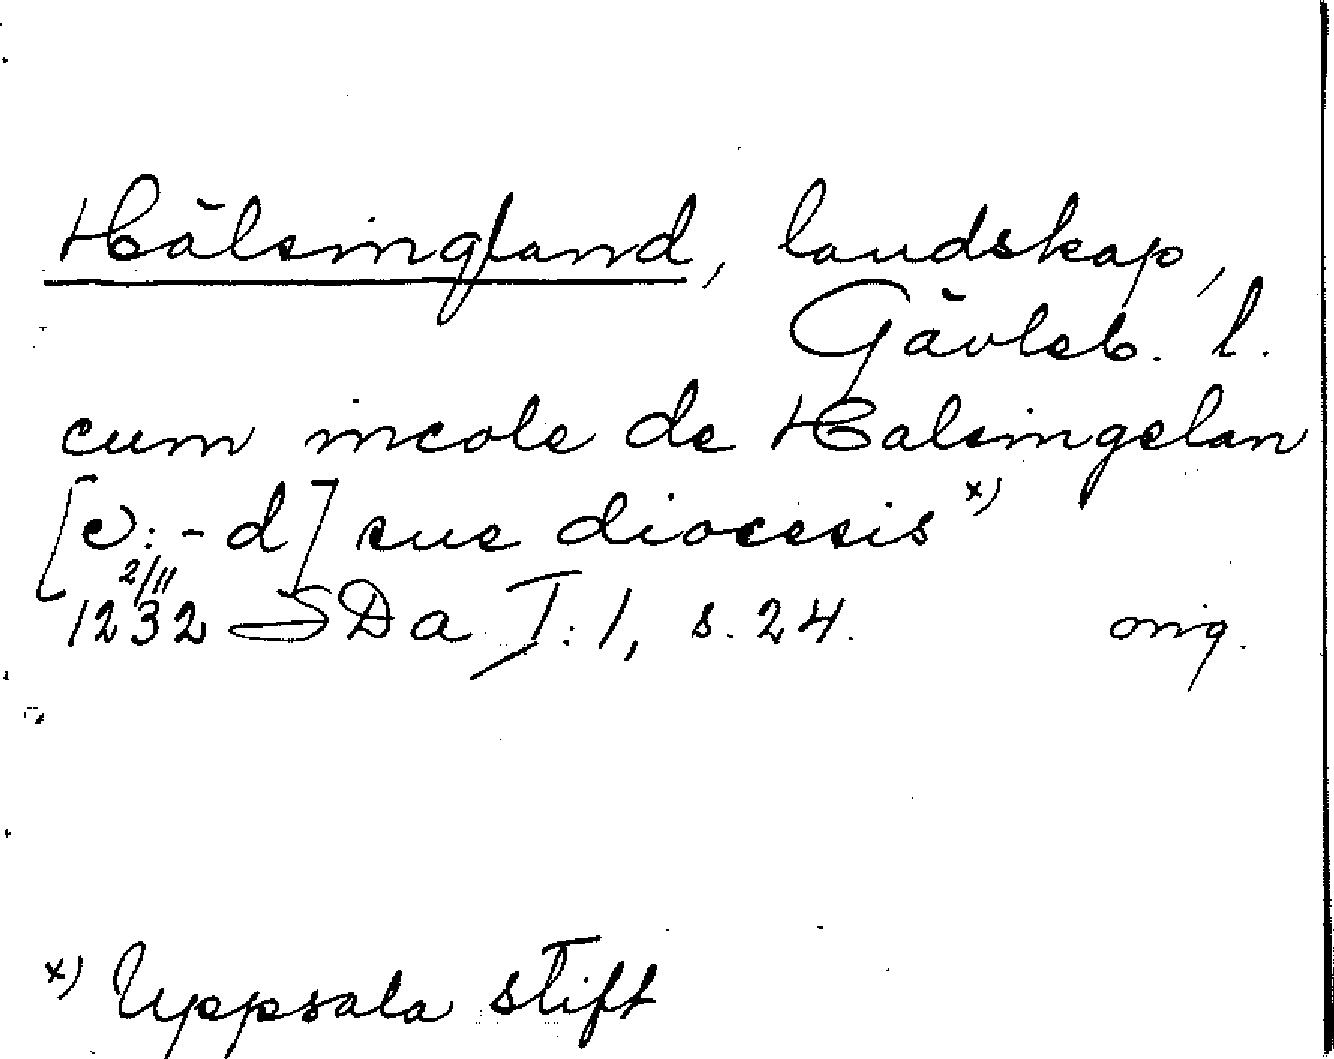 Hälsingland, landskap,
Gävleb. l.
cum incole de Halsingelan
[v: -d] sue diocesis x)
2/11
1232 SDa I:1, s. 24. orig.
x) Uppsala stift